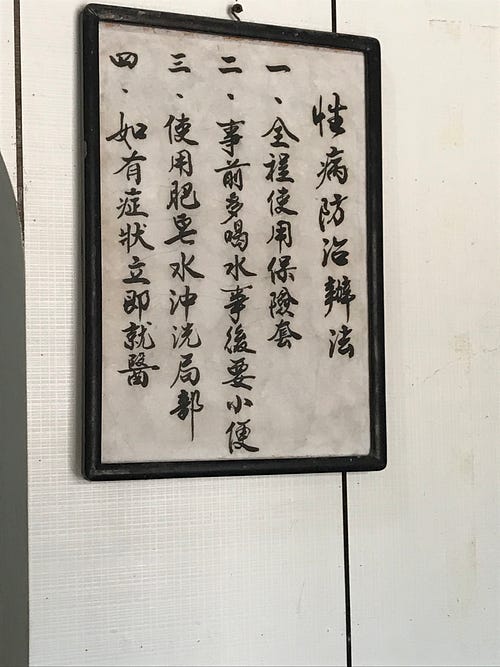 性病防治辦法
一、全程使用保險套
二、事前多喝水事後要小便
三、使用肥皂水沖洗局部
四、如有症狀立即就醫